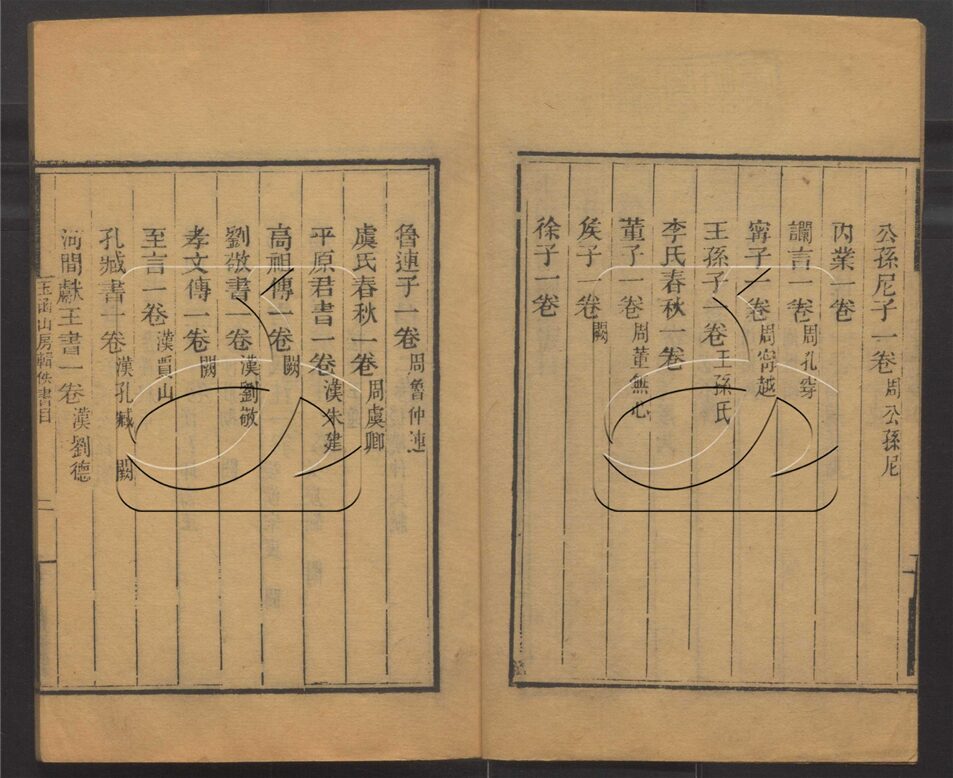 公孫尼子一卷周公孫尼
內業一卷
讕言一卷周孔穿
甯子一卷周甯越
王孫子一卷王孫氏
李氏春秋一卷
董子一卷周董無心
矦子一卷闕
徐子一卷
魯連子一卷周魯仲連
虞氏春秋一卷周虞卿
平原君書一卷漢朱建
高祖傳一卷闕
劉敬書一卷漢劉敬
孝文傳一卷闕
至言一卷漢賈山
孔臧書一卷漢孔臧 闕
河間獻王書一卷漢劉德
玉函山房輯佚書目 二